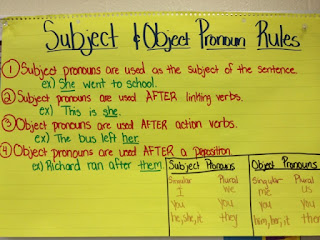 Subject & Object Pronoun Rules
① Subject pronouns are used as the subject of the sentence.
ex) She went to school.
② Subject pronouns are used AFTER linking verbs.
ex) This is she.
③ Object pronouns are used AFTER action verbs.
ex) The bus left her.
④ Object pronouns are used AFTER a
ex) Richard ran after them.
Subject Pronouns
Singular Plural
I we
you you
he, she, it they
Object Pronouns
Singular Plural
me us
you you
him, her, it them